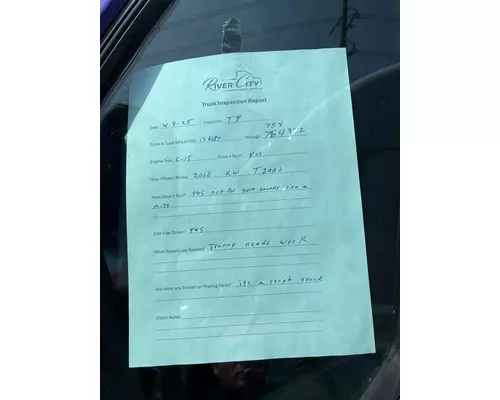 RIVER CITY
Truck Inspection Report
Date 4-9-25 Inspector T#
754
Mileage
Engine Type C-15 Does it Run? Yes
Year / Make / Model 2006 KW T2000
How Does it Run? Yes not for sure sounds like a
miss
Can it be Driven? Yes
What Repairs are Needed? Tranny needs work
Are there any Broken or Missing Parts? its a rough truck
Other Notes